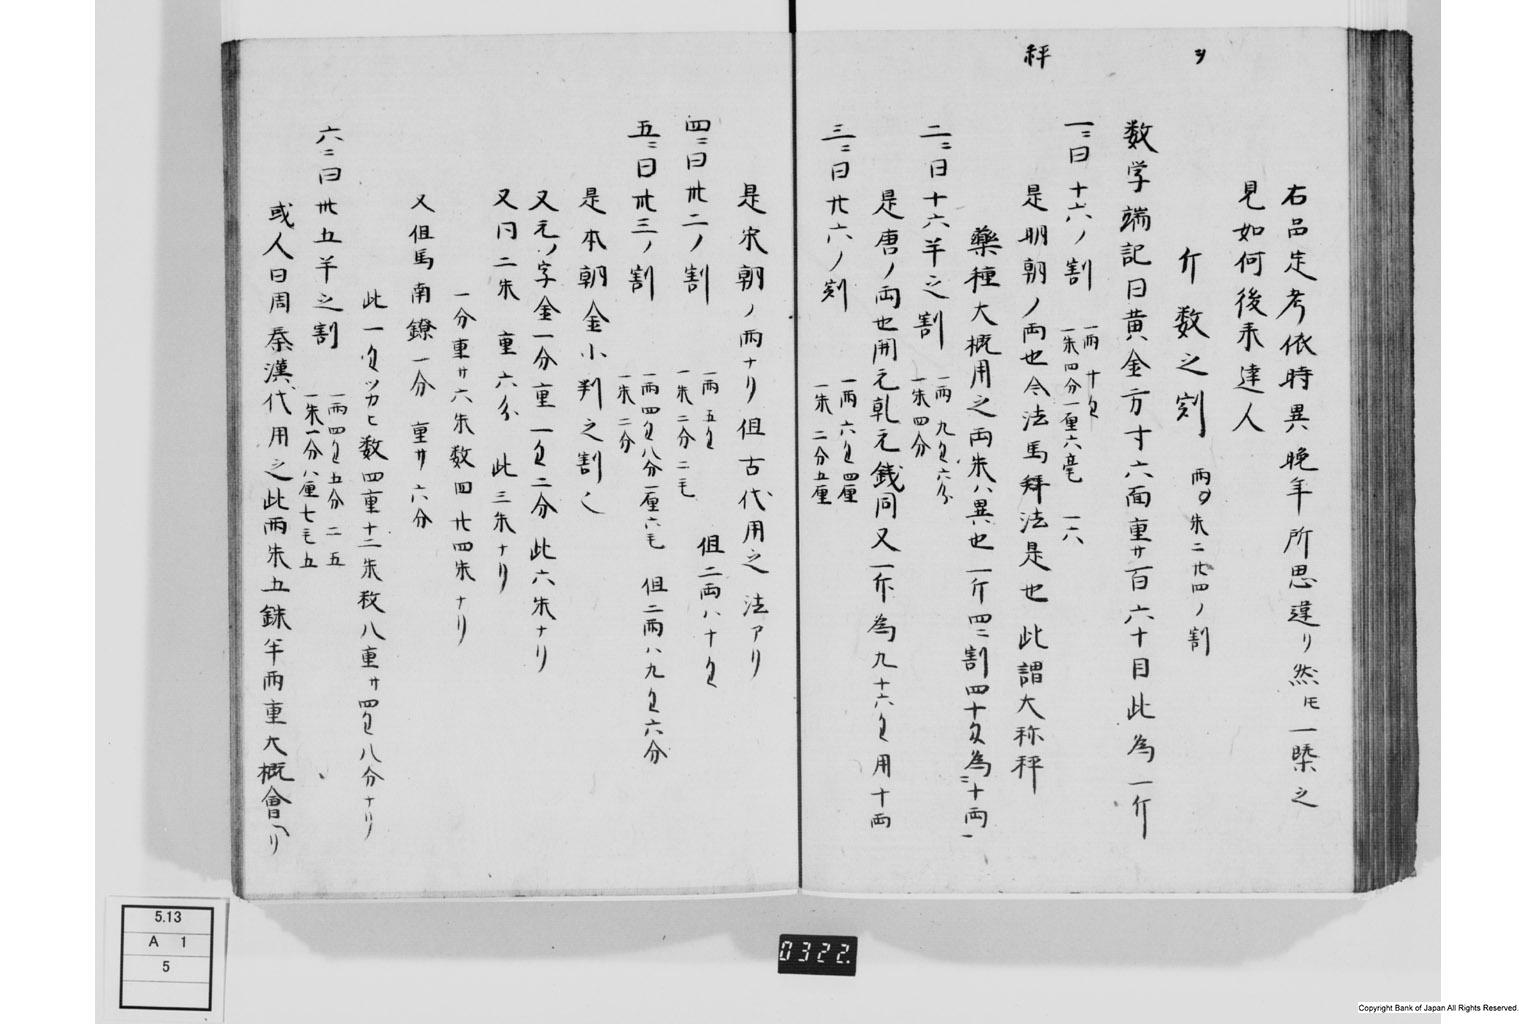 ヲ
秤
右品定考依時異晩年所思違リ然𪜈一槩之
見如何後来達人
斤数之割 両目朱二廿四ノ割
数学端記曰黄金方寸六面重サ百六十目此為一斤
一ニ曰十六ノ割 一両十匁 一朱四分一厘六毫 一六
是明朝ノ両也今法馬拜法是也此謂大称秤
薬種大概用之両朱ハ異也一斤四ニ割四十匁為ニ十両一
二ニ曰十六半之割 一両九匁六分 一朱四分
是唐ノ両也開元乾元銭同又一斤為九十六匁用十両
三ニ曰廿六ノ割 一両六匁四厘 一朱二分五厘
是宋朝ノ両ナリ但古代用之法アリ
四ニ曰卅二ノ割 一両五匁 一朱二分二毛 但二両ハ十匁
五ニ曰卅三ノ割 一両四匁八分一厘六毛 一朱二分 但二両ハ九匁六分
是本朝金小判之割〱
又元ノ字金一分重一匁二分此六朱ナリ
又同二朱重六分 此三朱ナリ
一分重サ六朱数四廿四朱ナリ
又但馬南鐐一分重サ六分
此一匁ツカヒ数四重十二朱秡八重サ四匁八分ナリ
六ニ曰卅五半之割 一両四匁五分二五 一朱一分八厘七毛五
或人曰周秦漢代用之此両朱五銖半両重大概會ヘリ
5.13
A 1
5
0322.
Copyright Bank of Japan All Rights Reserved.